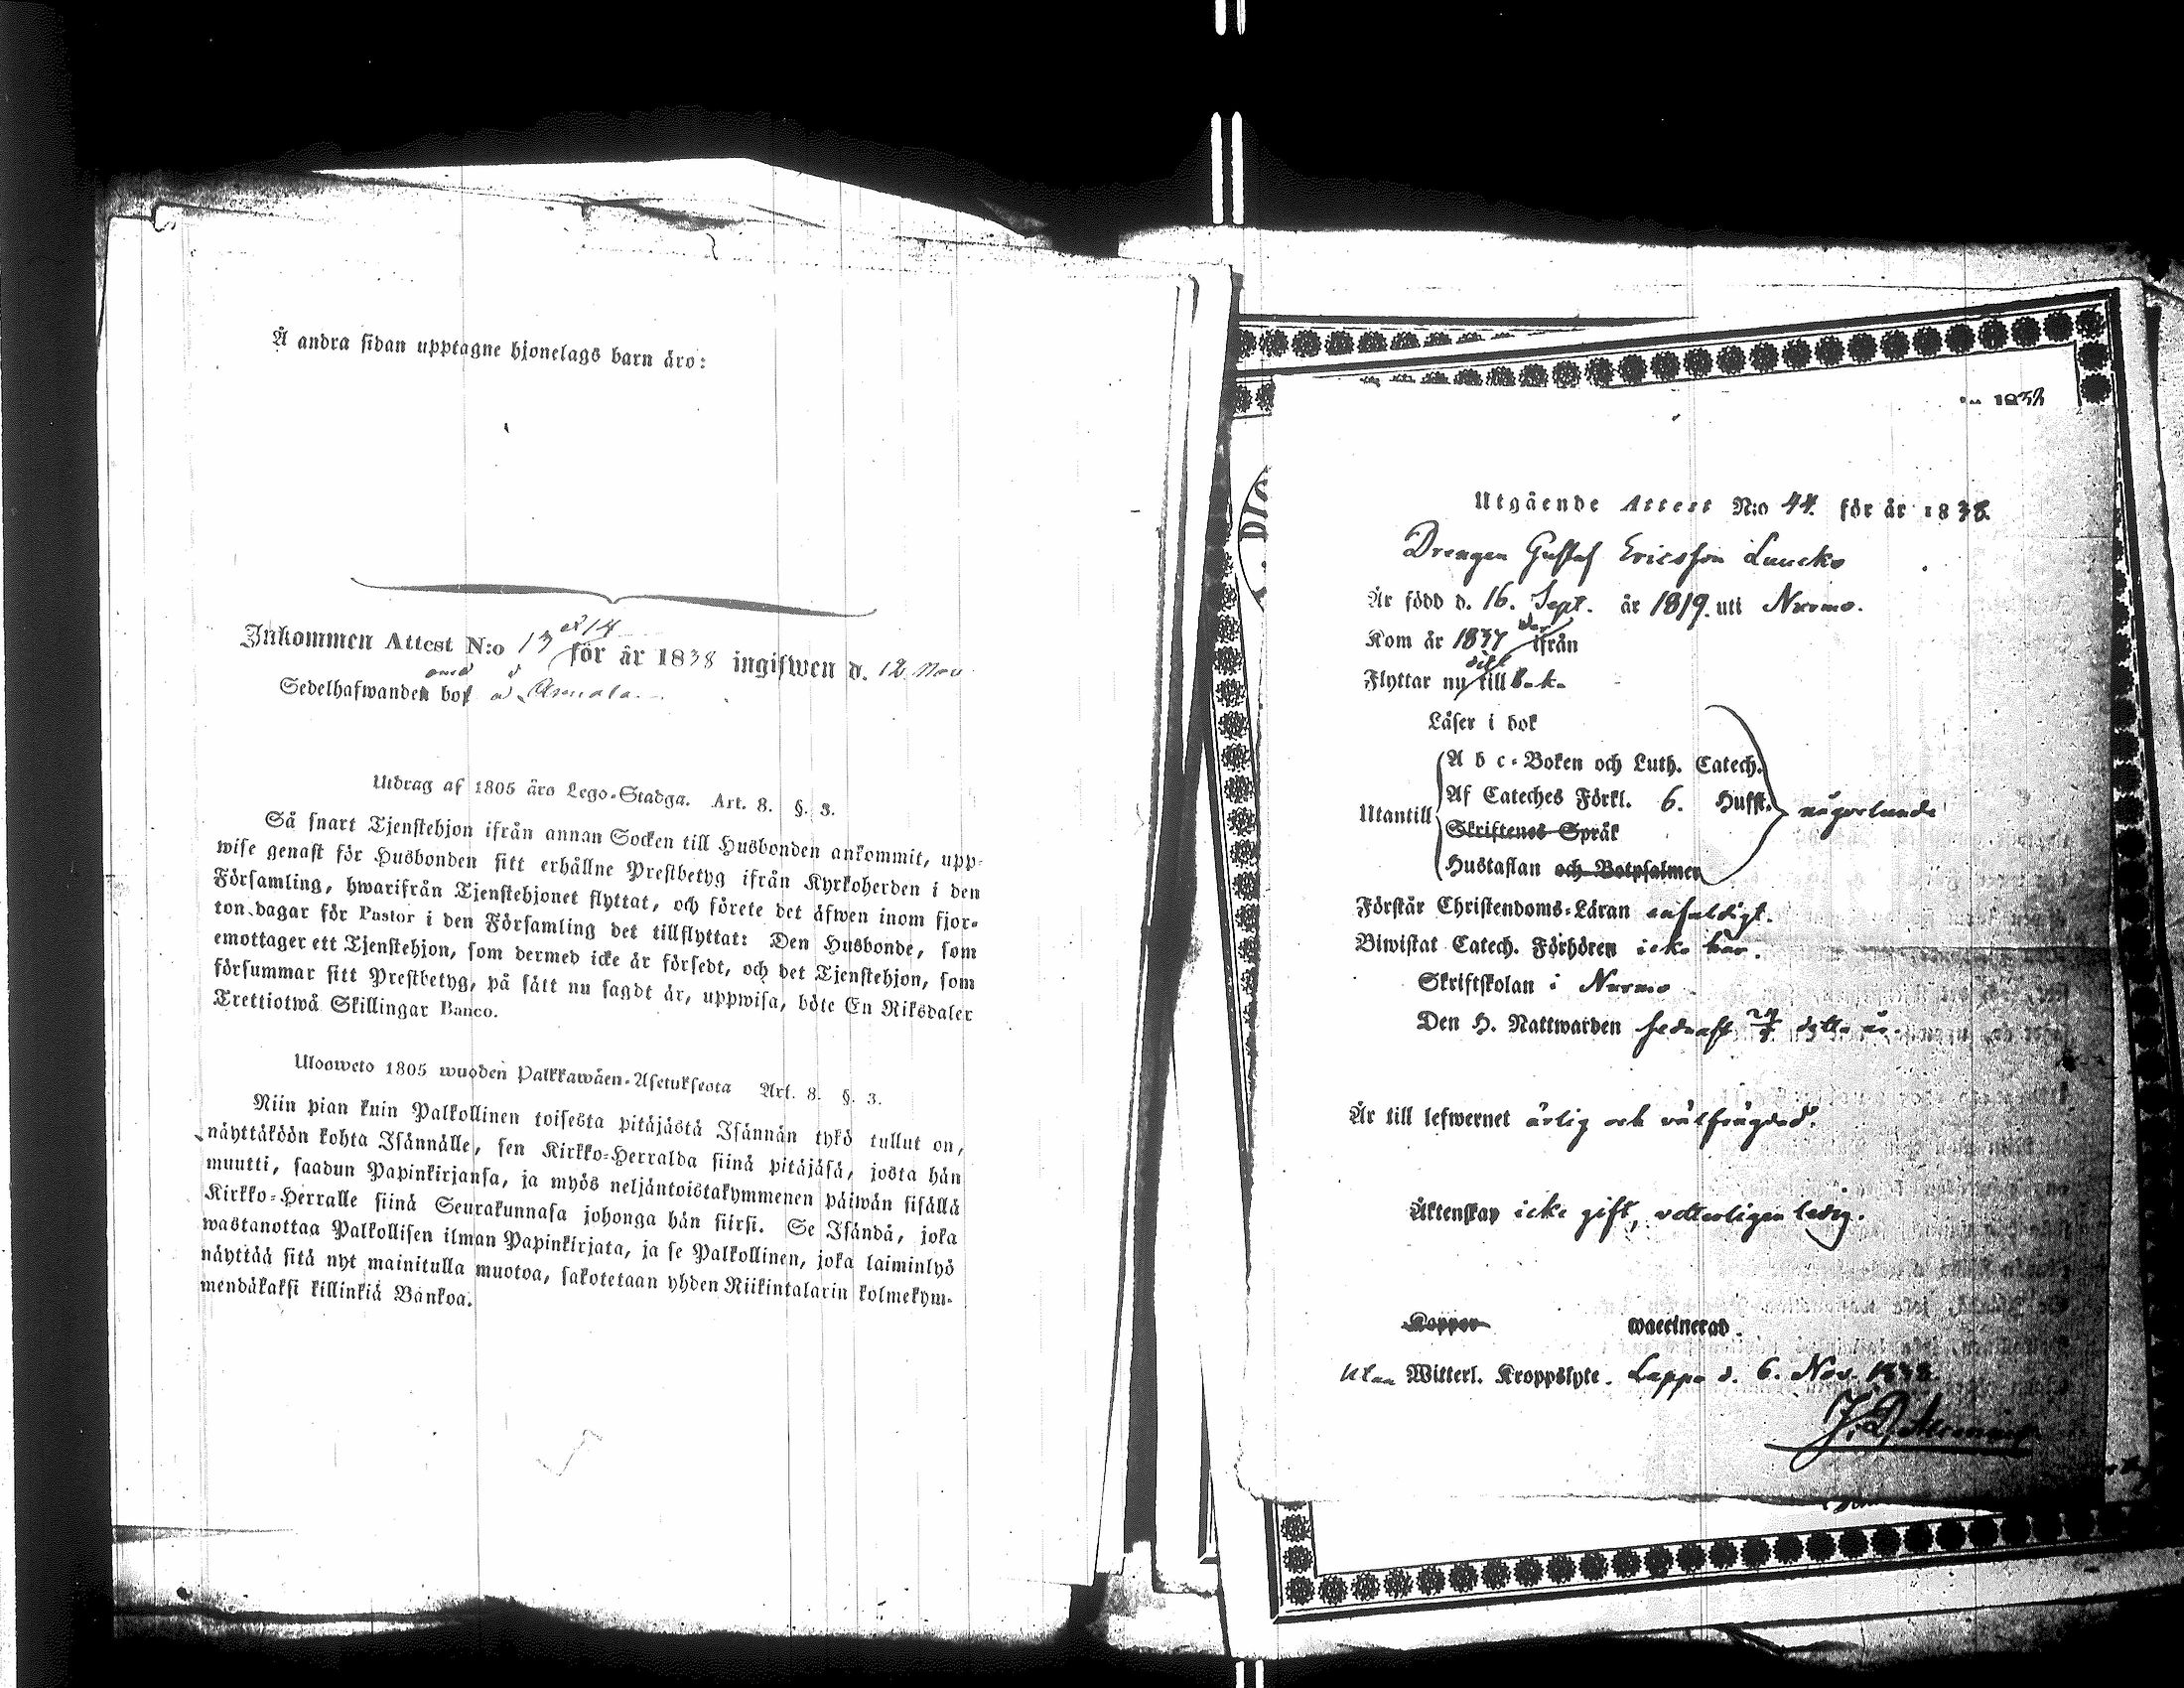 Å andra sidan upptagne hjonelags barn äro:
Inkommen Attest N:o 13 et 14 för år 1838 ingifwen d. 12 Nov
Sedelhafwanden bor å
Utdrag af 1805 års Lego-Stadga. Art. 8. §. 3.
Så snart Tjenstehjon ifrån annan Socken till Husbonden ankommit, upp-
wise genast för Husbonden sitt erhållne Prestbetyg ifrån Kyrkoherden i den
Församling, hwarifrån Tjenstehjonet flyttat, och förete det äfwen inom fjor-
ton dagar för Pastor i den Församling det tillflyttat: Den Husbonde, som
emottager ett Tjenstehjon, som dermed icke är försedt, och det Tjenstehjon, som
försummar sitt Prestbetyg, på sätt nu sagdt är, uppwisa, böte En Riksdaler
Trettiotwå Skillingar Banco.
Ulosweto 1805 wuoden Palkkawäen-Asetuksesta Art. 8. §. 3.
Niin pian kuin Palkollinen toisesta pitäjästä Isännän tykö tullut on,
näyttäköön kohta Isännälle, sen Kirkko-Herralda siinä pitäjäsä, josta hän
muutti, saadun Papinkirjansa, ja myös neljäntoistakymmenen päiwän sisällä
Kirkko-Herralle siinä Seurakunnasa johonga hän siirsi. Se Isändä, joka
wastanottaa Palkollisen ilman Papinkirjata, ja se Palkollinen, joka laiminlyö
näyttää sitä nyt mainitulla muotoa, sakotetaan yhden Riikintalarin kolmekym-
mendäkaksi killinkiä Bankoa.
1838
Utgående Attest N:o 44. för år 1838.
Drengen Gustaf Ericsson Luucko
Är född d. 16. Sept. år 1819. uti Nurmo.
Kom år 1837 ifrån
Flyttar nu till
Läser i bok
A b c-Boken och Luth. Catech.
Utantill
Af Cateches Förkl. 6. Hufst. någorlunda
Skriftenes Språk
Hustaflan och Botpsalmer
Förstår Christendoms-Läran enfaldigt.
Biwistat Catech. Förhören icke här.
Skriftskolan i Nurmo
Den H. Nattwarden sednast detta år.
Är till lefwernet ärlig och välfrägdad.
Äktenskap icke gift, vetterligen ledig.
Koppor waccinerad.
Utan Witterl. Kroppslyte. Lappo d. 6. Nov. 1838.